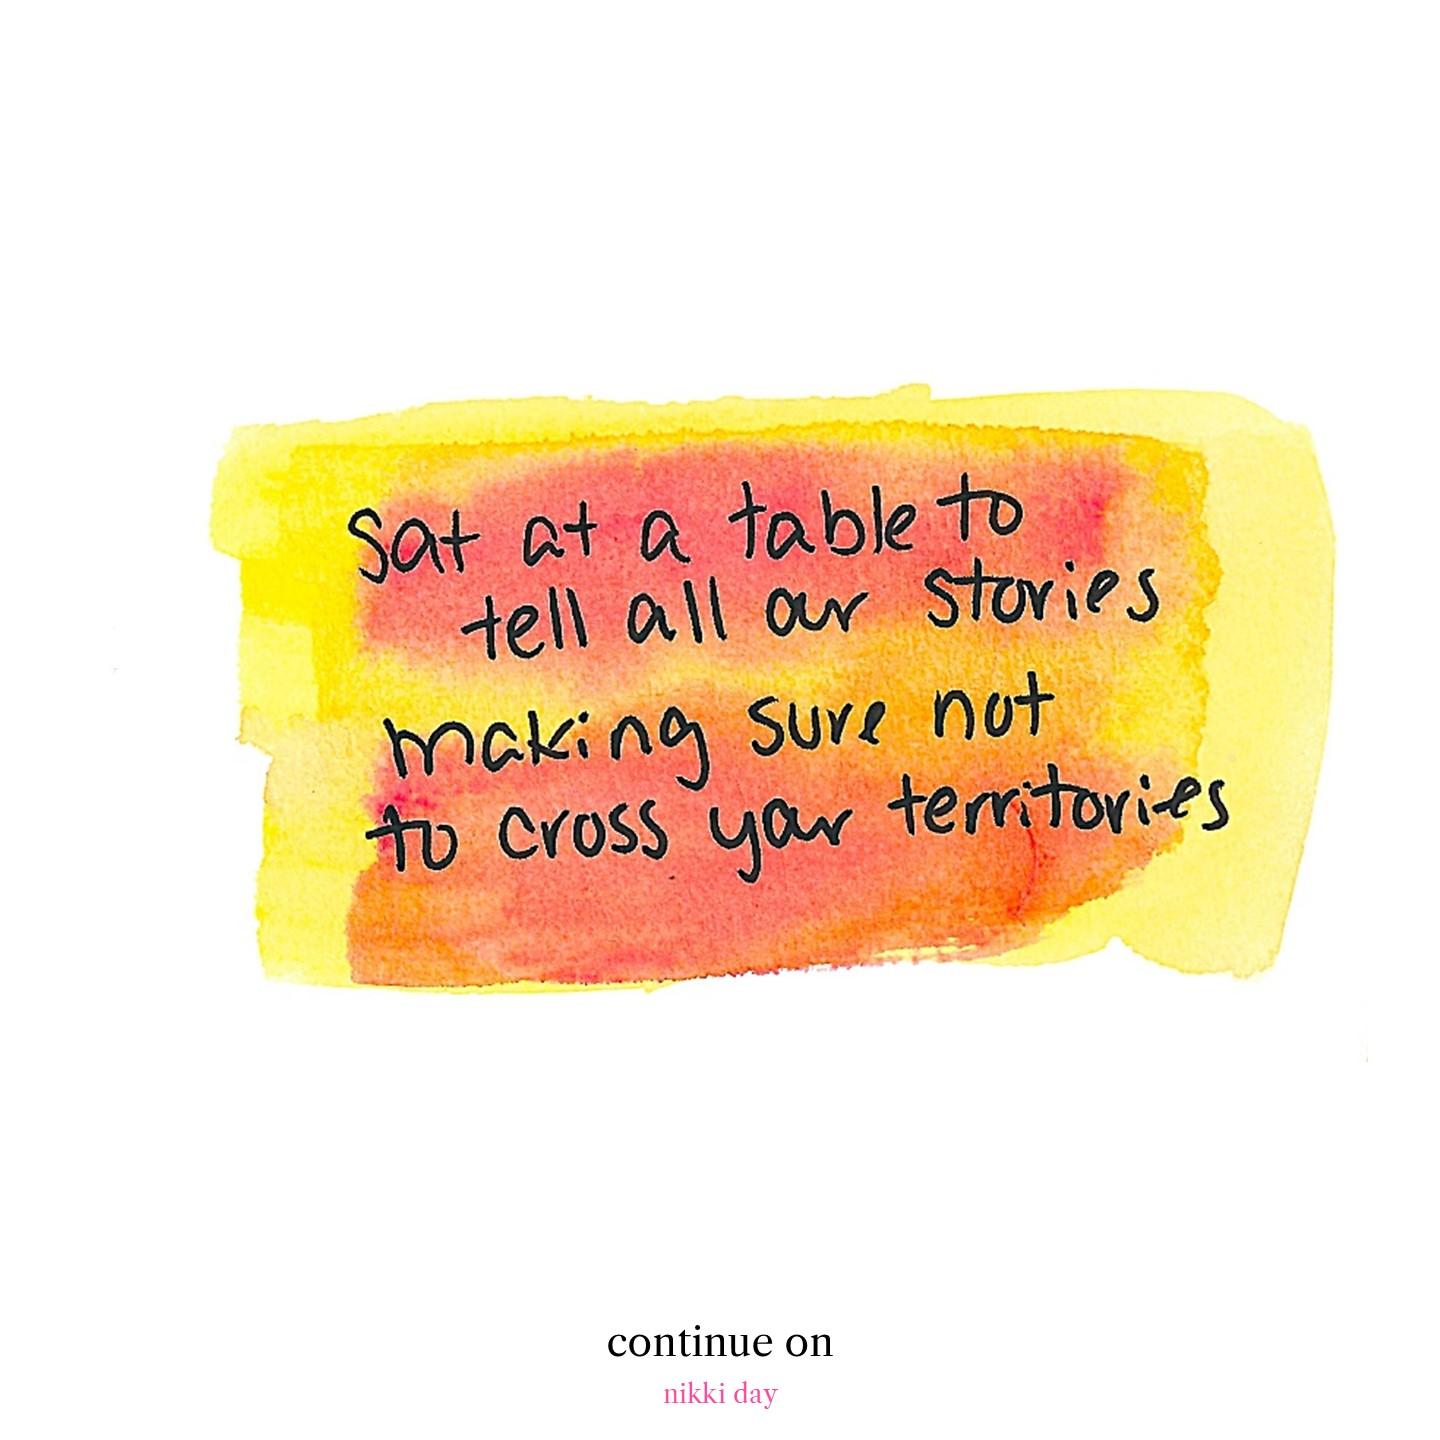 Sat at a table to
tell all our stories
making sure not
to cross your territories
continue on
nikki day